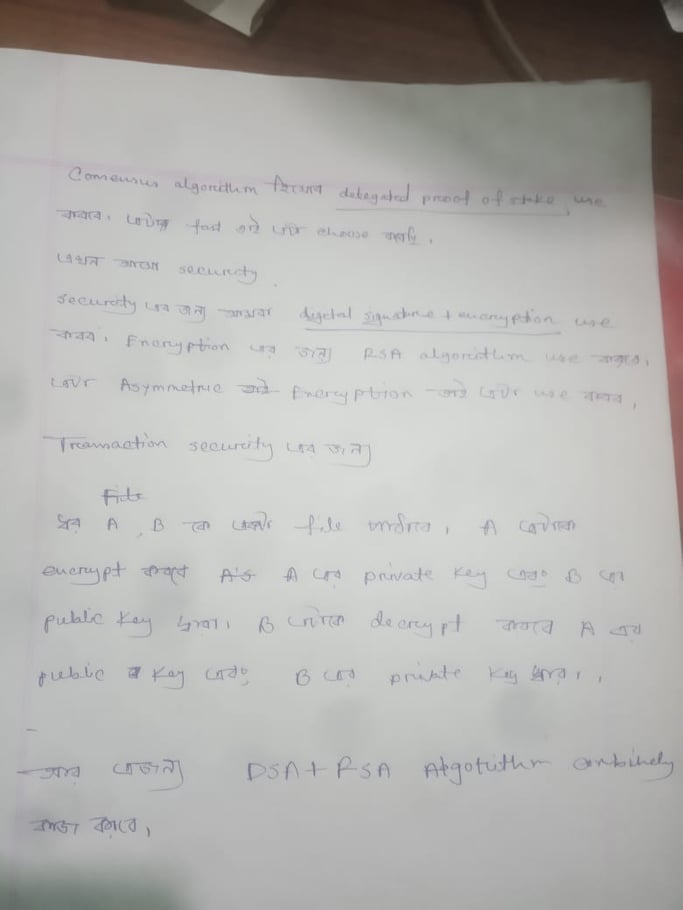 Consensus algorithm হিসেবে delegated proof of stake use
করবে। এটা fast তাই এটা choose করছি।
এখন আসো security
security এর জন্য আমরা digital signature + encryption use
করব। Encryption এর জন্য RSA algorithm use করবে।
এটা Asymmetric Encryption তাই এটা use করব।
Transaction security এর জন্য
ধর A, B কে একটা file পাঠাবে। A এটাকে
encrypt করবে A এর private key এবং B এর
public key দ্বারা। B এটাকে decrypt করবে A এর
public key এবং B এর private key দ্বারা।
আর এজন্য DSA + RSA Algotithm combinely
কাজ করবে।